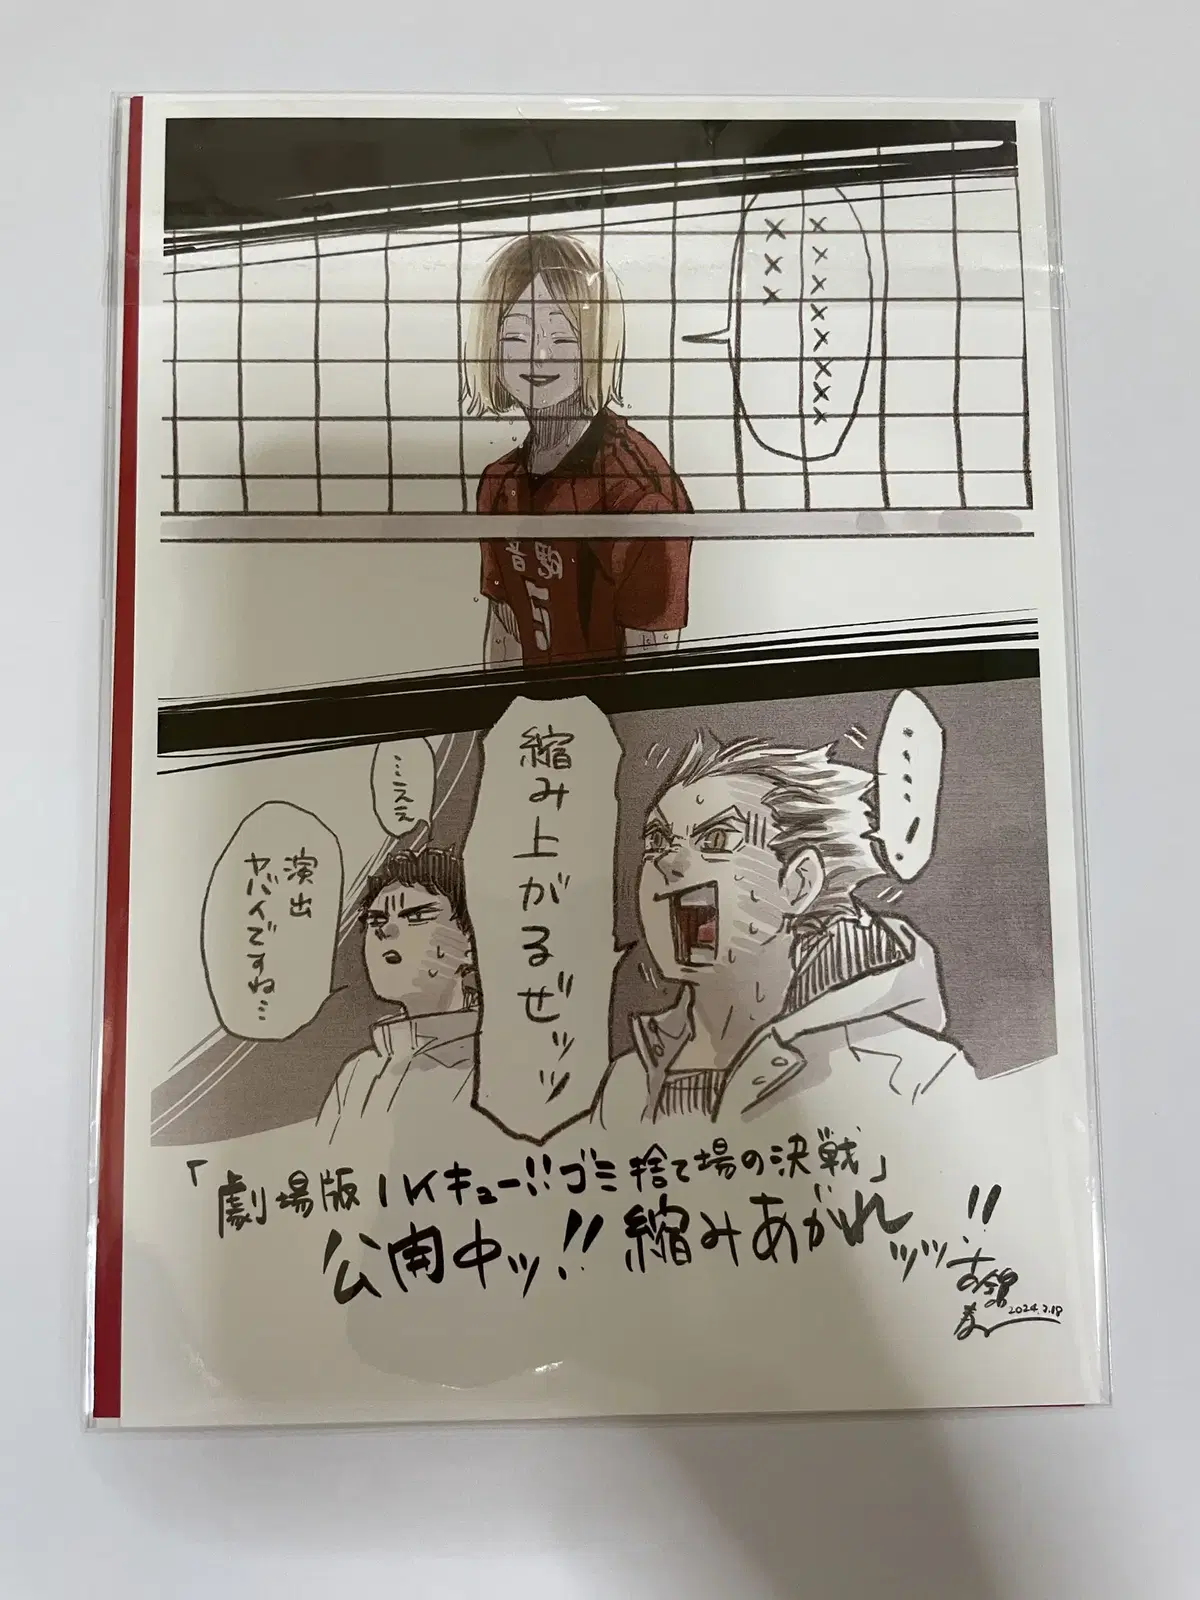 ×××××××
×××
音駒
5
‥‥‥!
縮み上がるぜッッ
…ええ
演出
ヤバイですね…
「劇場版ハイキュー!!ゴミ捨て場の決戦」
公開中ッ!!縮みあがれッッ!!
古舘
春一
2024.2.18